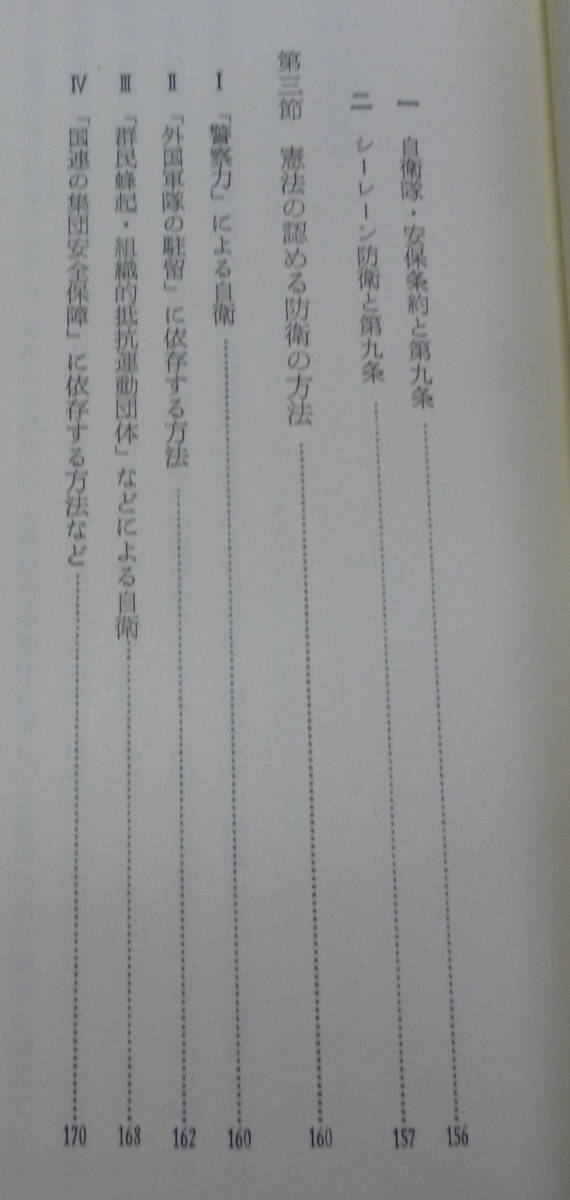 一 自衛隊・安保条約と第九条……156
二 シーレーン防衛と第九条……157
第三節 憲法の認める防衛の方法……160
Ⅰ 「警察力」による自衛……160
Ⅱ 「外国軍隊の駐留」に依存する方法……162
Ⅲ 「群民蜂起・組織的抵抗運動団体」などによる自衛……168
Ⅳ 「国連の集団安全保障」に依存する方法など……170